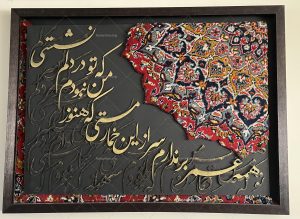 همه عمر بر ندارم سر از این خمار مستی
که هنوز من نبودم
که تو در دلم نشستی